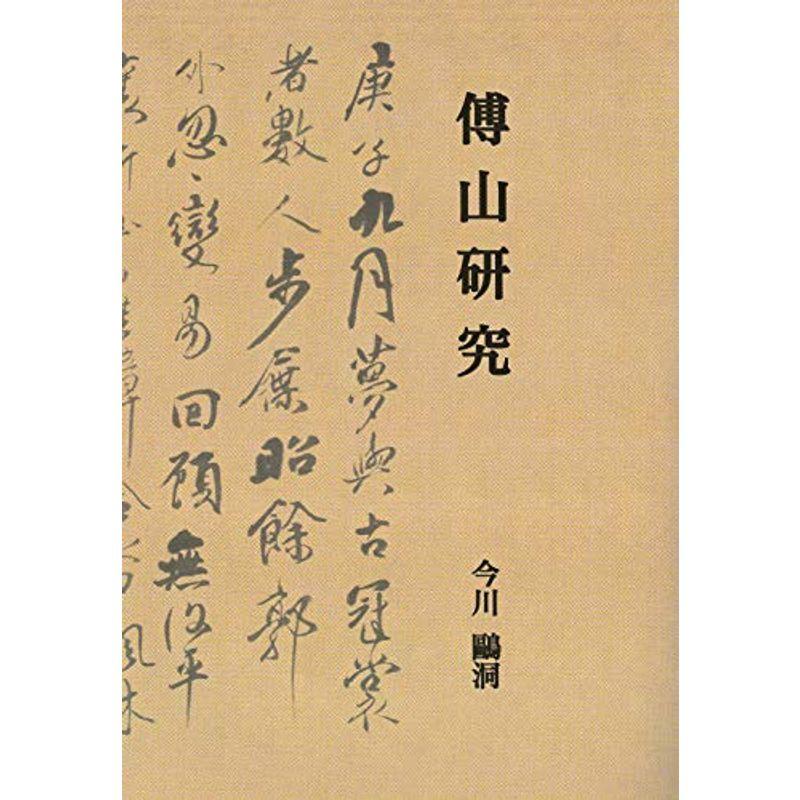 傅山研究
今川 鷗洞
庚子九月夢與古冠裳
者數人步屧昭餘郭
外忽〻變易回顧無復平